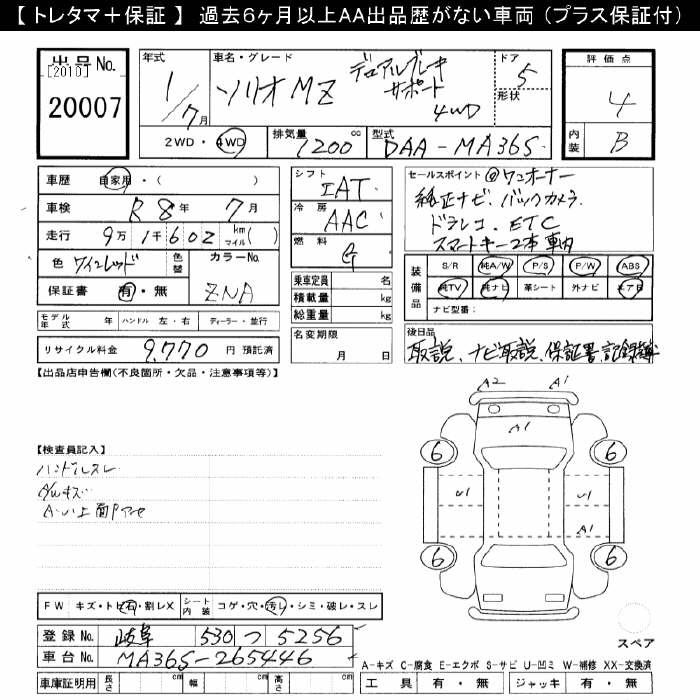 【 トレタマ＋保証 】 過去6ヶ月以上AA出品歴がない車両（プラス保証付）
出品No.
[2010]
20007
年式
1/7月
車名・グレード
ソリオ MZ
デュアルブレーキ
サポート
4WD
ドア
5
形状
2WD・4WD
排気量
1200 cc
型式
DAA-MA36S
評価点
4
内装
B
車歴 自家用・( )
車検 R8年 7月
走行 9万1千602 km マイル( )
色 ワインレッド
色替
カラーNo.
ZNA
保証書 有・無
シフト
IAT
冷房
AAC
燃料
G
乗車定員 名
積載量 kg
総重量 kg
セールスポイント @ワンオーナー
純正ナビ、バックカメラ
ドラレコ、ETC
スマートキー2本 車内
装備品
S/R 純A/W P/S P/W ABS
純TV 純ナビ 革シート 外ナビ エアB
ナビ型番：
モデル年式 年 ハンドル 左・右 ディーラー・並行
リサイクル料金 9,770 円 預託済
名変期限
月 日
後日品
取説、ナビ取説、保証書、記録簿
【出品店申告欄(不良箇所・欠品・注意事項等)】
【検査員記入】
ハンドルスレ
A/Wキズ
A2 A1
A1
6 6
U1 U1
A1
6 6
スペア
FW キズ・トビ石・割レX
シート内装 コゲ・穴・汚レ・シミ・破レ・スレ
登録No. 岐阜 530 つ 5256
車台No. MA36S-265446
車庫証明用 長さ cm 幅 cm 高さ cm
A-キズ C-腐食 E-エクボ S-サビ U-凹ミ W-補修 XX-交換済
工具 有・無 ジャッキ 有・無